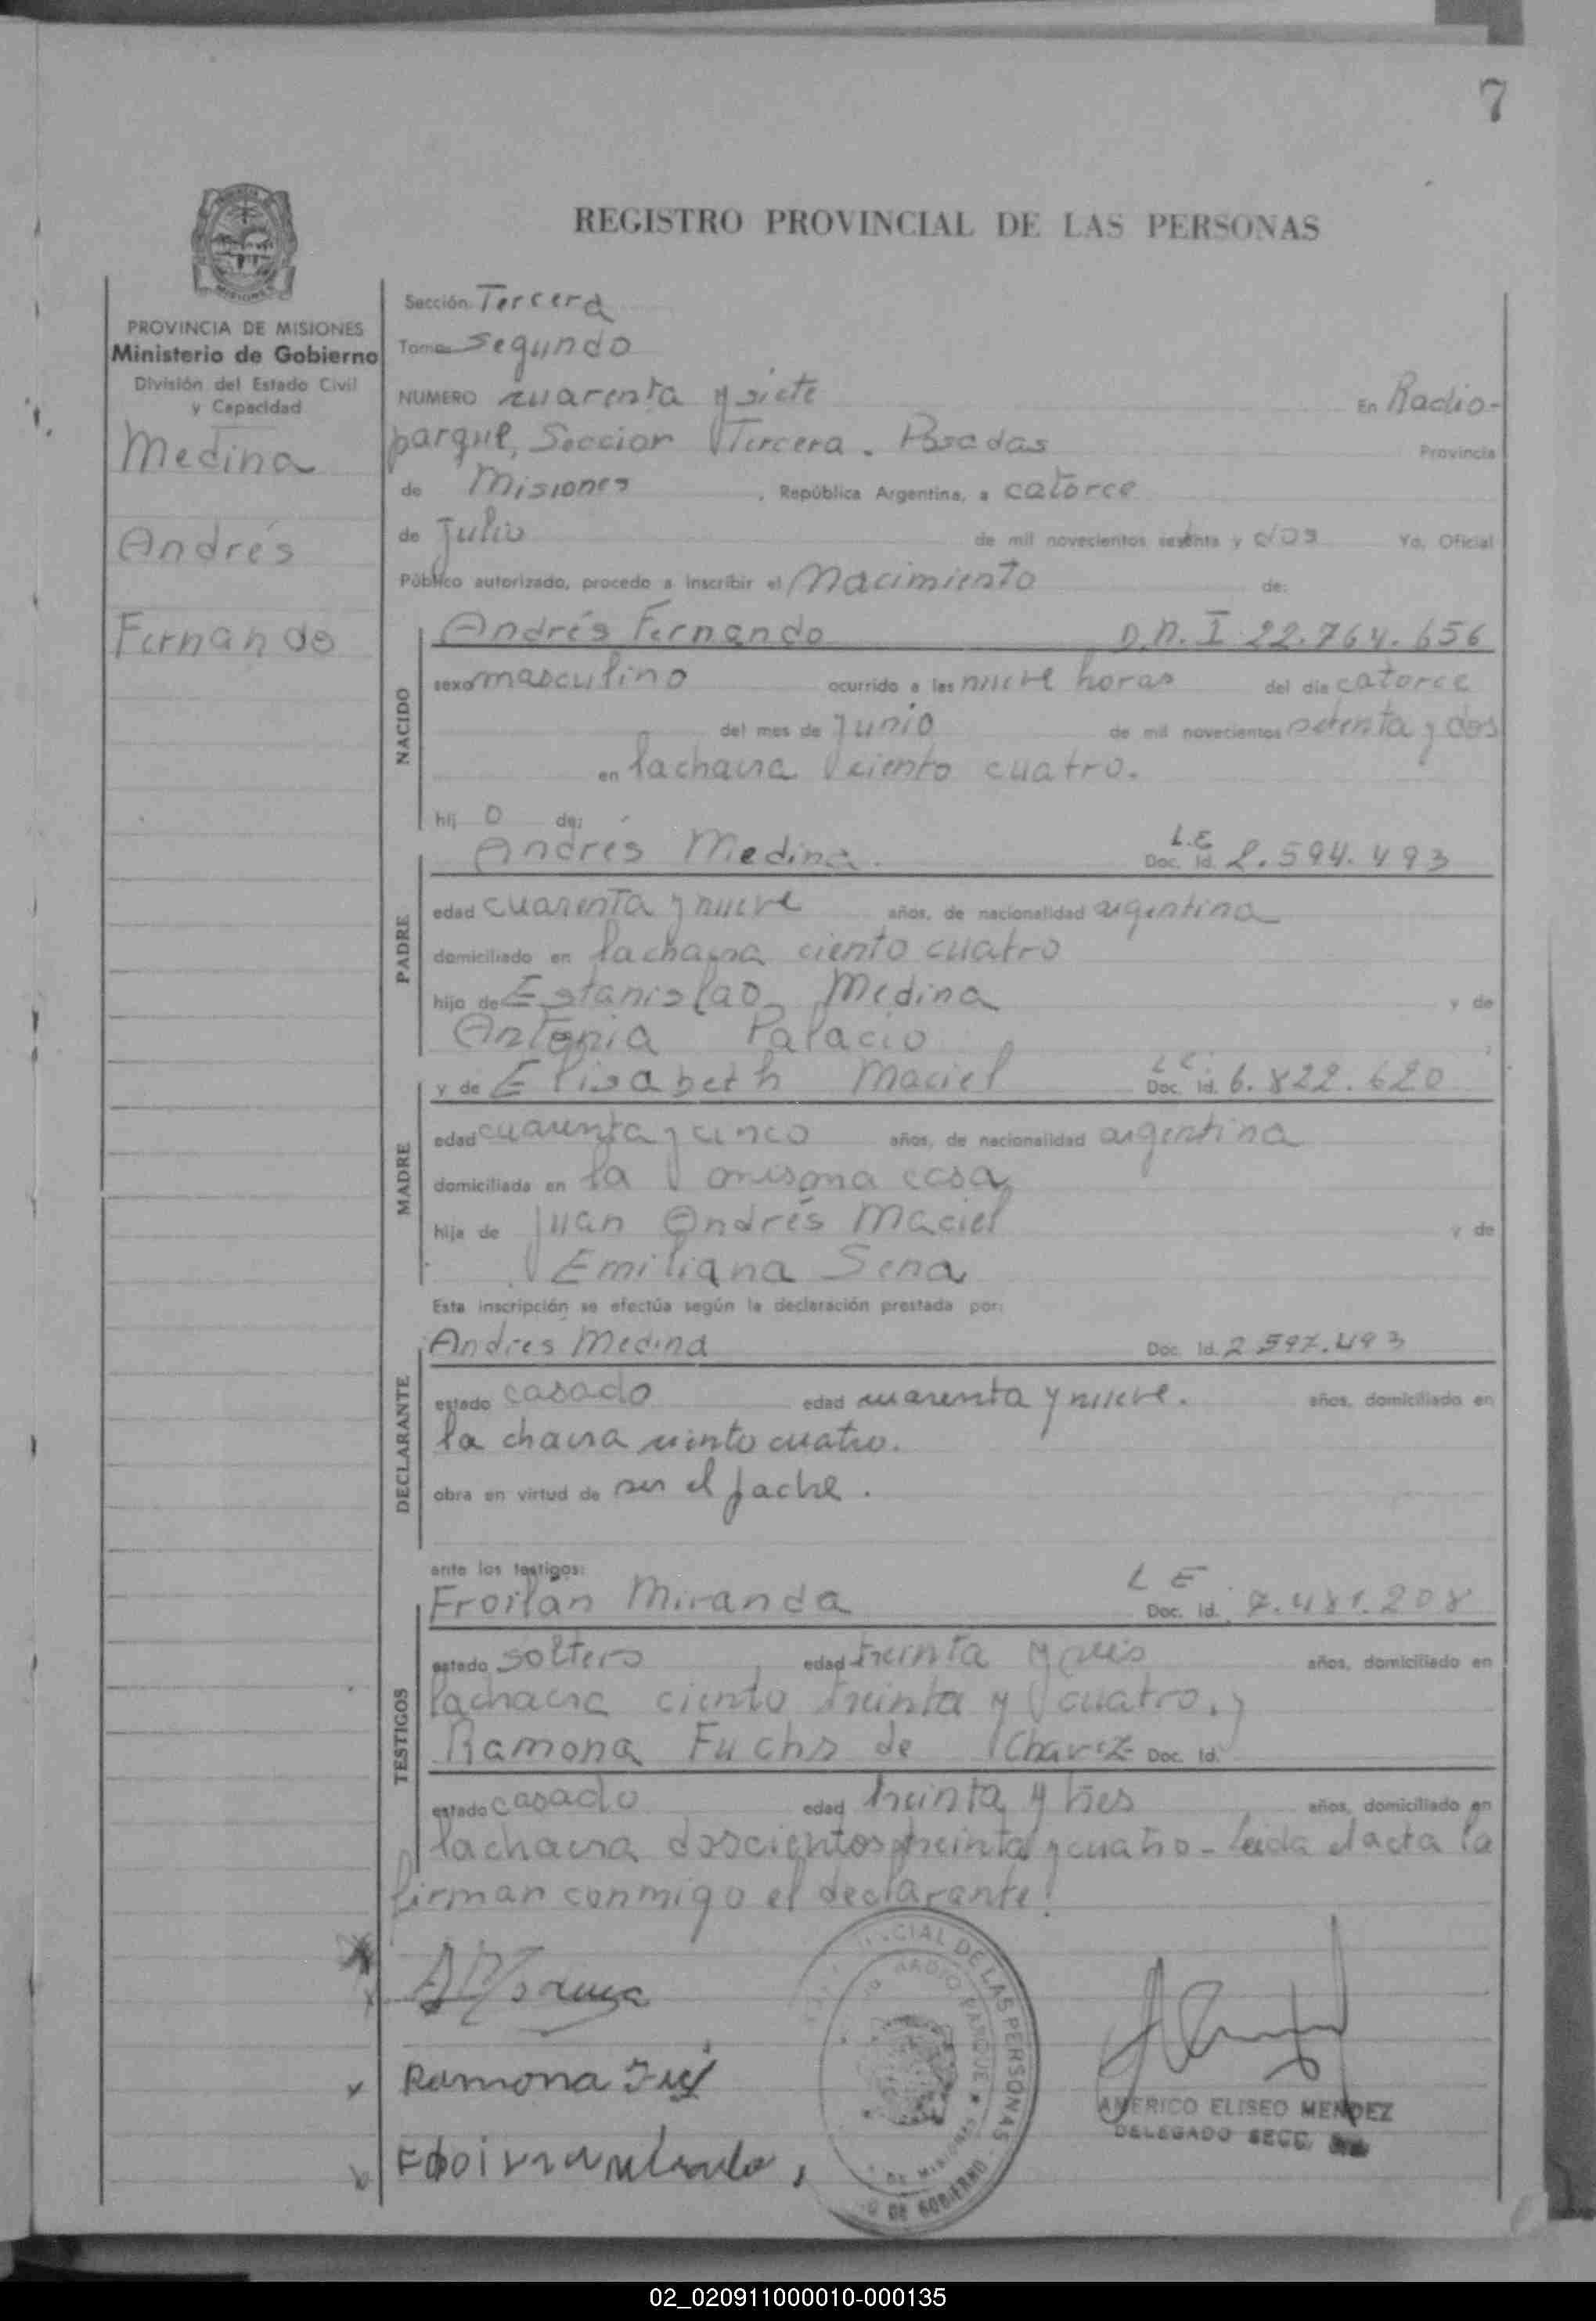 7
REGISTRO PROVINCIAL DE LAS PERSONAS
MISIONES
PROVINCIA DE MISIONES
Ministerio de Gobierno
División del Estado Civil
y Capacidad
Medina
Andrés
Fernando
Sección Tercera
Tomo Segundo
NUMERO cuarenta y siete En Radio-
parque, Seccion Tercera. Posadas Provincia
de Misiones, República Argentina, a catorce
de Julio de mil novecientos setenta y dos Yo, Oficial
Público autorizado, procedo a inscribir el Nacimiento de:
NACIDO
Andrés Fernando D.N.I 22.764.656
sexo masculino ocurrido a las nueve horas del día catorce
del mes de Junio de mil novecientos setenta y dos
en lachacra ciento cuatro.
hij o de:
PADRE
Andrés Medina. L.E Doc. Id. 2.594.493
edad cuarenta y nueve años, de nacionalidad argentina
domiciliado en lachacra ciento cuatro
hijo de Estanislao Medina y de
Antonia Palacio
MADRE
y de Elisabeth Maciel L C. Doc. Id. 6.822.620
edad cuarenta y cinco años, de nacionalidad argentina
domiciliada en la misma casa
hija de Juan Andrés Maciel y de
Emiliana Sena
Esta inscripción se efectúa según la declaración prestada por:
DECLARANTE
Andres Medina Doc. Id. 2.597.493
estado casado edad cuarenta y nueve. años, domiciliado en
la chacra ciento cuatro.
obra en virtud de ser el padre.
ante los testigos:
TESTIGOS
Froilán Miranda L E Doc. Id. 7.481.208
estado soltero edad treinta y seis años, domiciliado en
lachacra ciento treinta y cuatro, y
Ramona Fuchs de Chavez Doc. Id.
estado casado edad treinta y tres años, domiciliado en
lachacra doscientos treinta y cuatro - Leida elacta la
firman conmigo el declarante.
Ramona
CIAL DE LAS PERSONAS
RADIO PARQUE
DE MISIONES
DE GOBIERNO
AMERICO ELISEO MENDEZ
DELEGADO SECC.
02_020911000010-000135